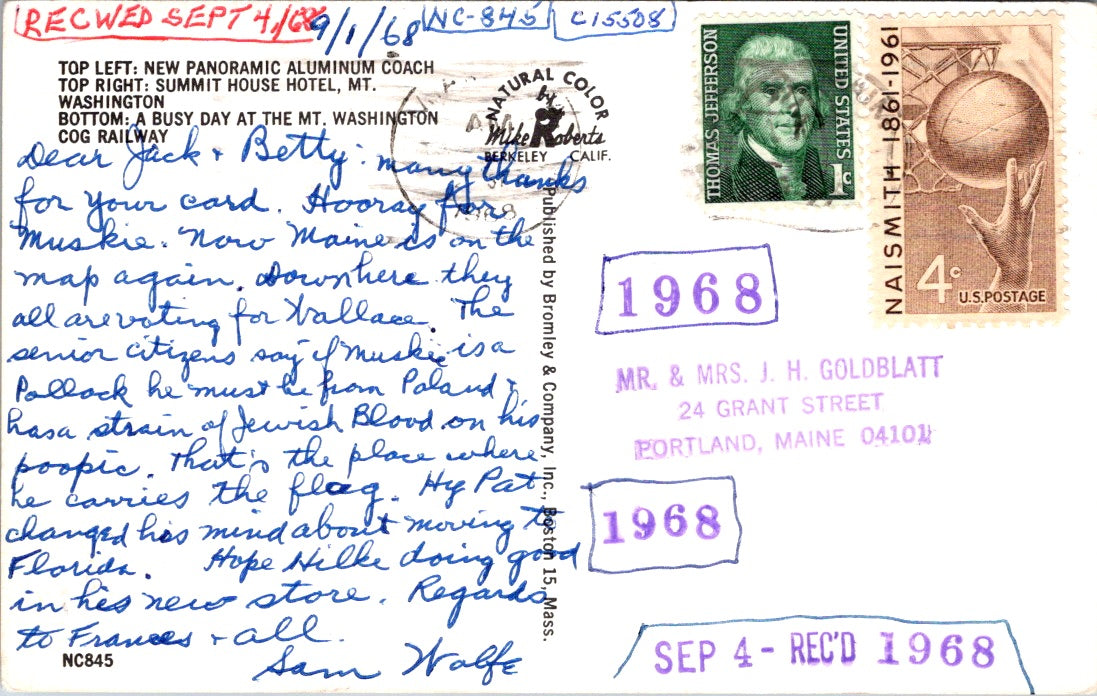 RECWED SEPT 4, /68
9/1/68
NC-845
C15508
TOP LEFT: NEW PANORAMIC ALUMINUM COACH
TOP RIGHT: SUMMIT HOUSE HOTEL, MT.
WASHINGTON
BOTTOM: A BUSY DAY AT THE MT. WASHINGTON
COG RAILWAY
NATURAL COLOR
by
Mike Roberts
BERKELEY CALIF.
AM
1968
Dear Jack & Betty: many thanks
for your card. Hooray for
Muskie. Now Maine is on the
map again. Down here they
all are voting for Wallace. The
senior citizens say if Muskie is a
Pollock he must be from Poland &
has a strain of Jewish Blood on his
poopic. That's the place where
he carries the flag. Hy Pat
changed his mind about moving to
Florida. Hope Hilke doing good
in his new store. Regards
to Frances & all.
Sam Wolfe
NC845
Published by Bromley & Company, Inc., Boston 15, Mass.
THOMAS JEFFERSON
UNITED STATES
1c
NAISMITH 1861-1961
4c
U.S.POSTAGE
1968
MR. & MRS. J. H. GOLDBLATT
24 GRANT STREET
PORTLAND, MAINE 04101
1968
SEP 4 - REC'D 1968